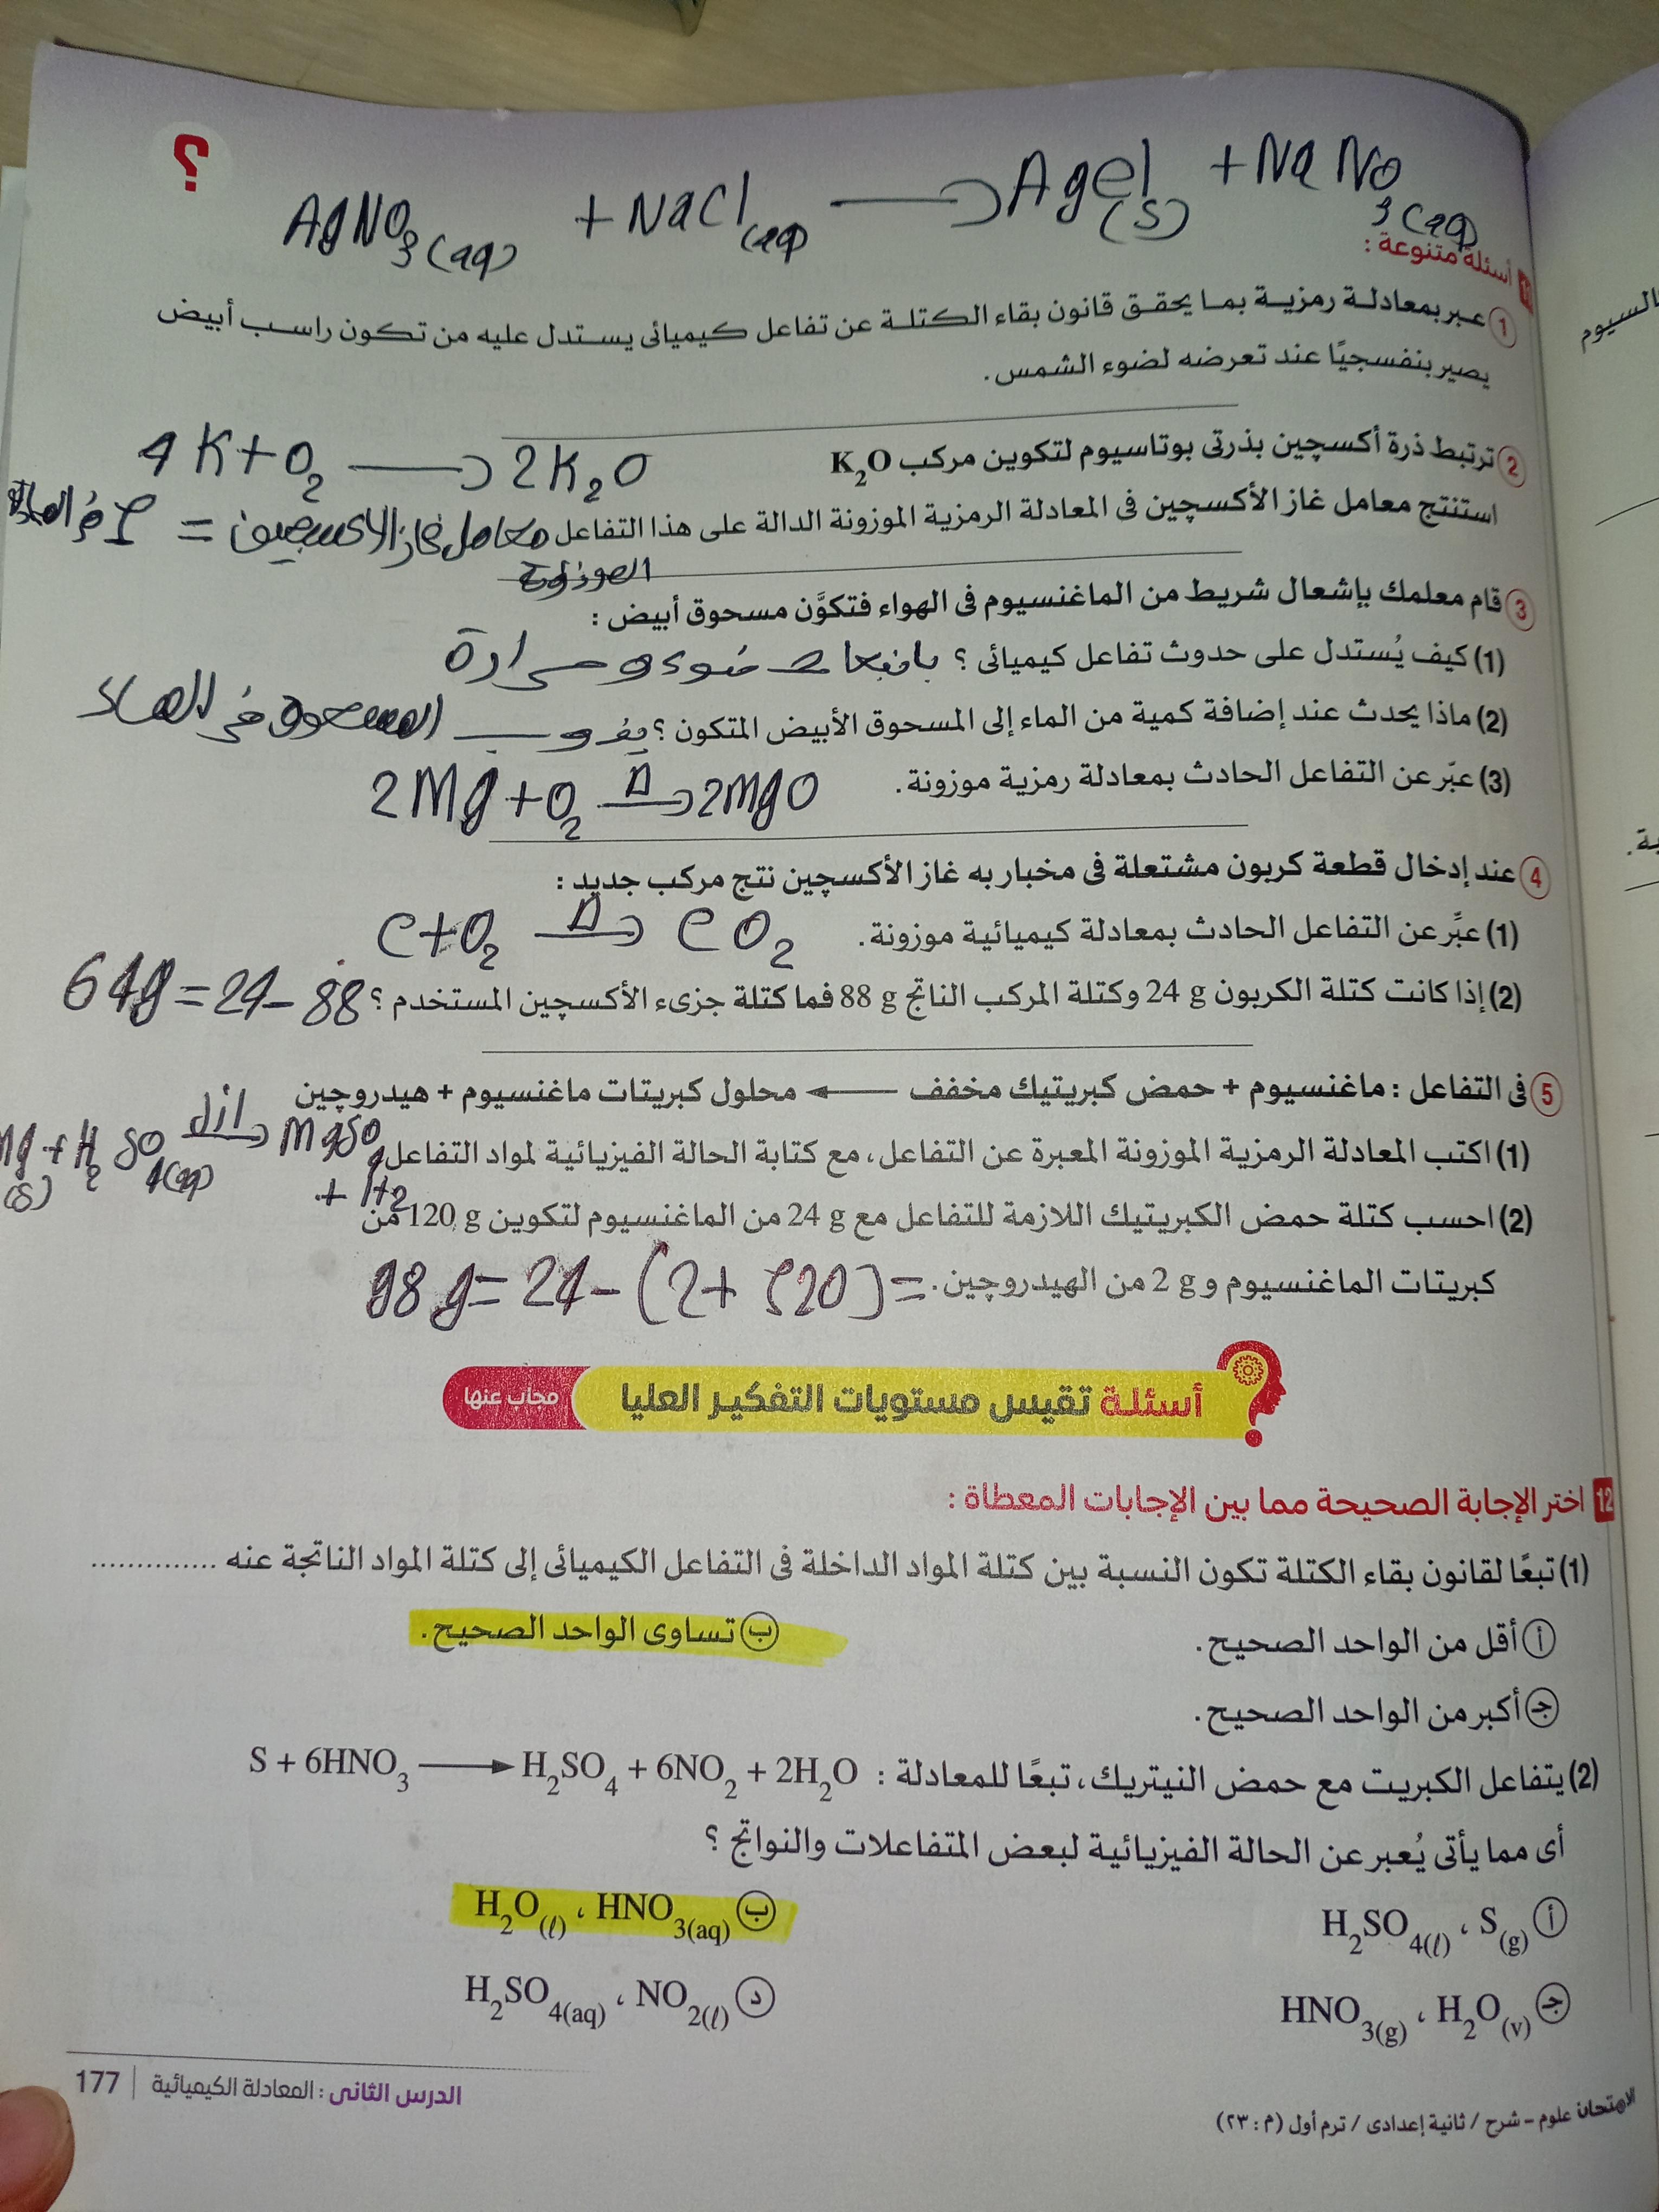 ؟
AgNO3(aq) + NaCl(aq) → AgCl(s) + NaNO3(aq)
11 أسئلة متنوعة :
1 عبر بمعادلة رمزية بما يحقق قانون بقاء الكتلة عن تفاعل كيميائى يستدل عليه من تكون راسب أبيض
يصير بنفسجيًا عند تعرضه لضوء الشمس.
2 ترتبط ذرة أكسچين بذرتى بوتاسيوم لتكوين مركب K2O
4K + O2 → 2K2O
استنتج معامل غاز الأكسچين فى المعادلة الرمزية الموزونة الدالة على هذا التفاعل
معامل غاز الاكسجين = 1 فى المعادلة
الموزونة
3 قام معلمك بإشعال شريط من الماغنسيوم فى الهواء فتكوَّن مسحوق أبيض :
(1) كيف يُستدل على حدوث تفاعل كيميائى ؟ بانبعاث ضوء و حرارة
(2) ماذا يحدث عند إضافة كمية من الماء إلى المسحوق الأبيض المتكون ؟ يذوب المسحوق فى الماء
(3) عبّر عن التفاعل الحادث بمعادلة رمزية موزونة.
2Mg + O2 →Δ 2MgO
4 عند إدخال قطعة كربون مشتعلة فى مخبار به غاز الأكسچين نتج مركب جديد :
(1) عبِّر عن التفاعل الحادث بمعادلة كيميائية موزونة.
C + O2 →Δ CO2
(2) إذا كانت كتلة الكربون 24 g وكتلة المركب الناتج 88 g فما كتلة جزىء الأكسچين المستخدم ؟
64g = 24 - 88
5 فى التفاعل : ماغنسيوم + حمض كبريتيك مخفف ← محلول كبريتات ماغنسيوم + هيدروچين
(1) اكتب المعادلة الرمزية الموزونة المعبرة عن التفاعل، مع كتابة الحالة الفيزيائية لمواد التفاعل
Mg(s) + H2SO4(aq) →dil MgSO4
+ H2
(2) احسب كتلة حمض الكبريتيك اللازمة للتفاعل مع 24 g من الماغنسيوم لتكوين 120 g من
كبريتات الماغنسيوم و 2 g من الهيدروچين.
98g = 24 - (2 + 120) =
أسئلة تقيس مستويات التفكير العليا مجاب عنها
12 اختر الإجابة الصحيحة مما بين الإجابات المعطاة :
(1) تبعًا لقانون بقاء الكتلة تكون النسبة بين كتلة المواد الداخلة فى التفاعل الكيميائى إلى كتلة المواد الناتجة عنه ..............
أ أقل من الواحد الصحيح. ب تساوى الواحد الصحيح.
جـ أكبر من الواحد الصحيح.
(2) يتفاعل الكبريت مع حمض النيتريك، تبعًا للمعادلة : S + 6HNO3 → H2SO4 + 6NO2 + 2H2O
أى مما يأتى يُعبر عن الحالة الفيزيائية لبعض المتفاعلات والنواتج ؟
أ S(g) ، H2SO4(l) ب HNO3(aq) ، H2O(l)
جـ H2O(v) ، HNO3(g) د NO2(l) ، H2SO4(aq)
الامتحان علوم - شرح / ثانية إعدادى / ترم أول (م : ٢٣)
الدرس الثانى : المعادلة الكيميائية | 177